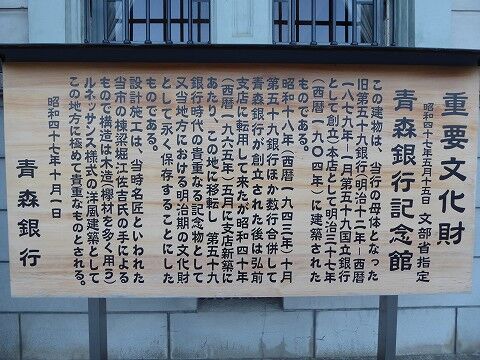 重要文化財
昭和四十七年五月十五日 文部省指定
青森銀行記念館
この建物は、当行の母体となった
旧第五十九銀行(明治十二年–西暦
一八七九年–一月第五十九国立銀行
として創立)本店として明治三十七年
(西暦一九〇四年)に建築された
ものである。
昭和十八年(西暦一九四三年)十月
第五十九銀行ほか数行合併して
青森銀行が創立された後は弘前
支店に転用して来たが昭和四十年
(西暦一九六五年)五月に支店新築に
あたり、この地に移転し 第五十九
銀行時代の貴重なる記念物として
又当地方における明治期の文化財
として永く保存することにした
ものである。
設計施工は、当時名匠といわれた
当市の棟梁堀江佐吉氏の手による
もので構造は木造(欅材を多く用う)
ルネッサンス様式の洋風建築として
この地方に極めて貴重なものとされる。
昭和四十七年十月一日
青森銀行